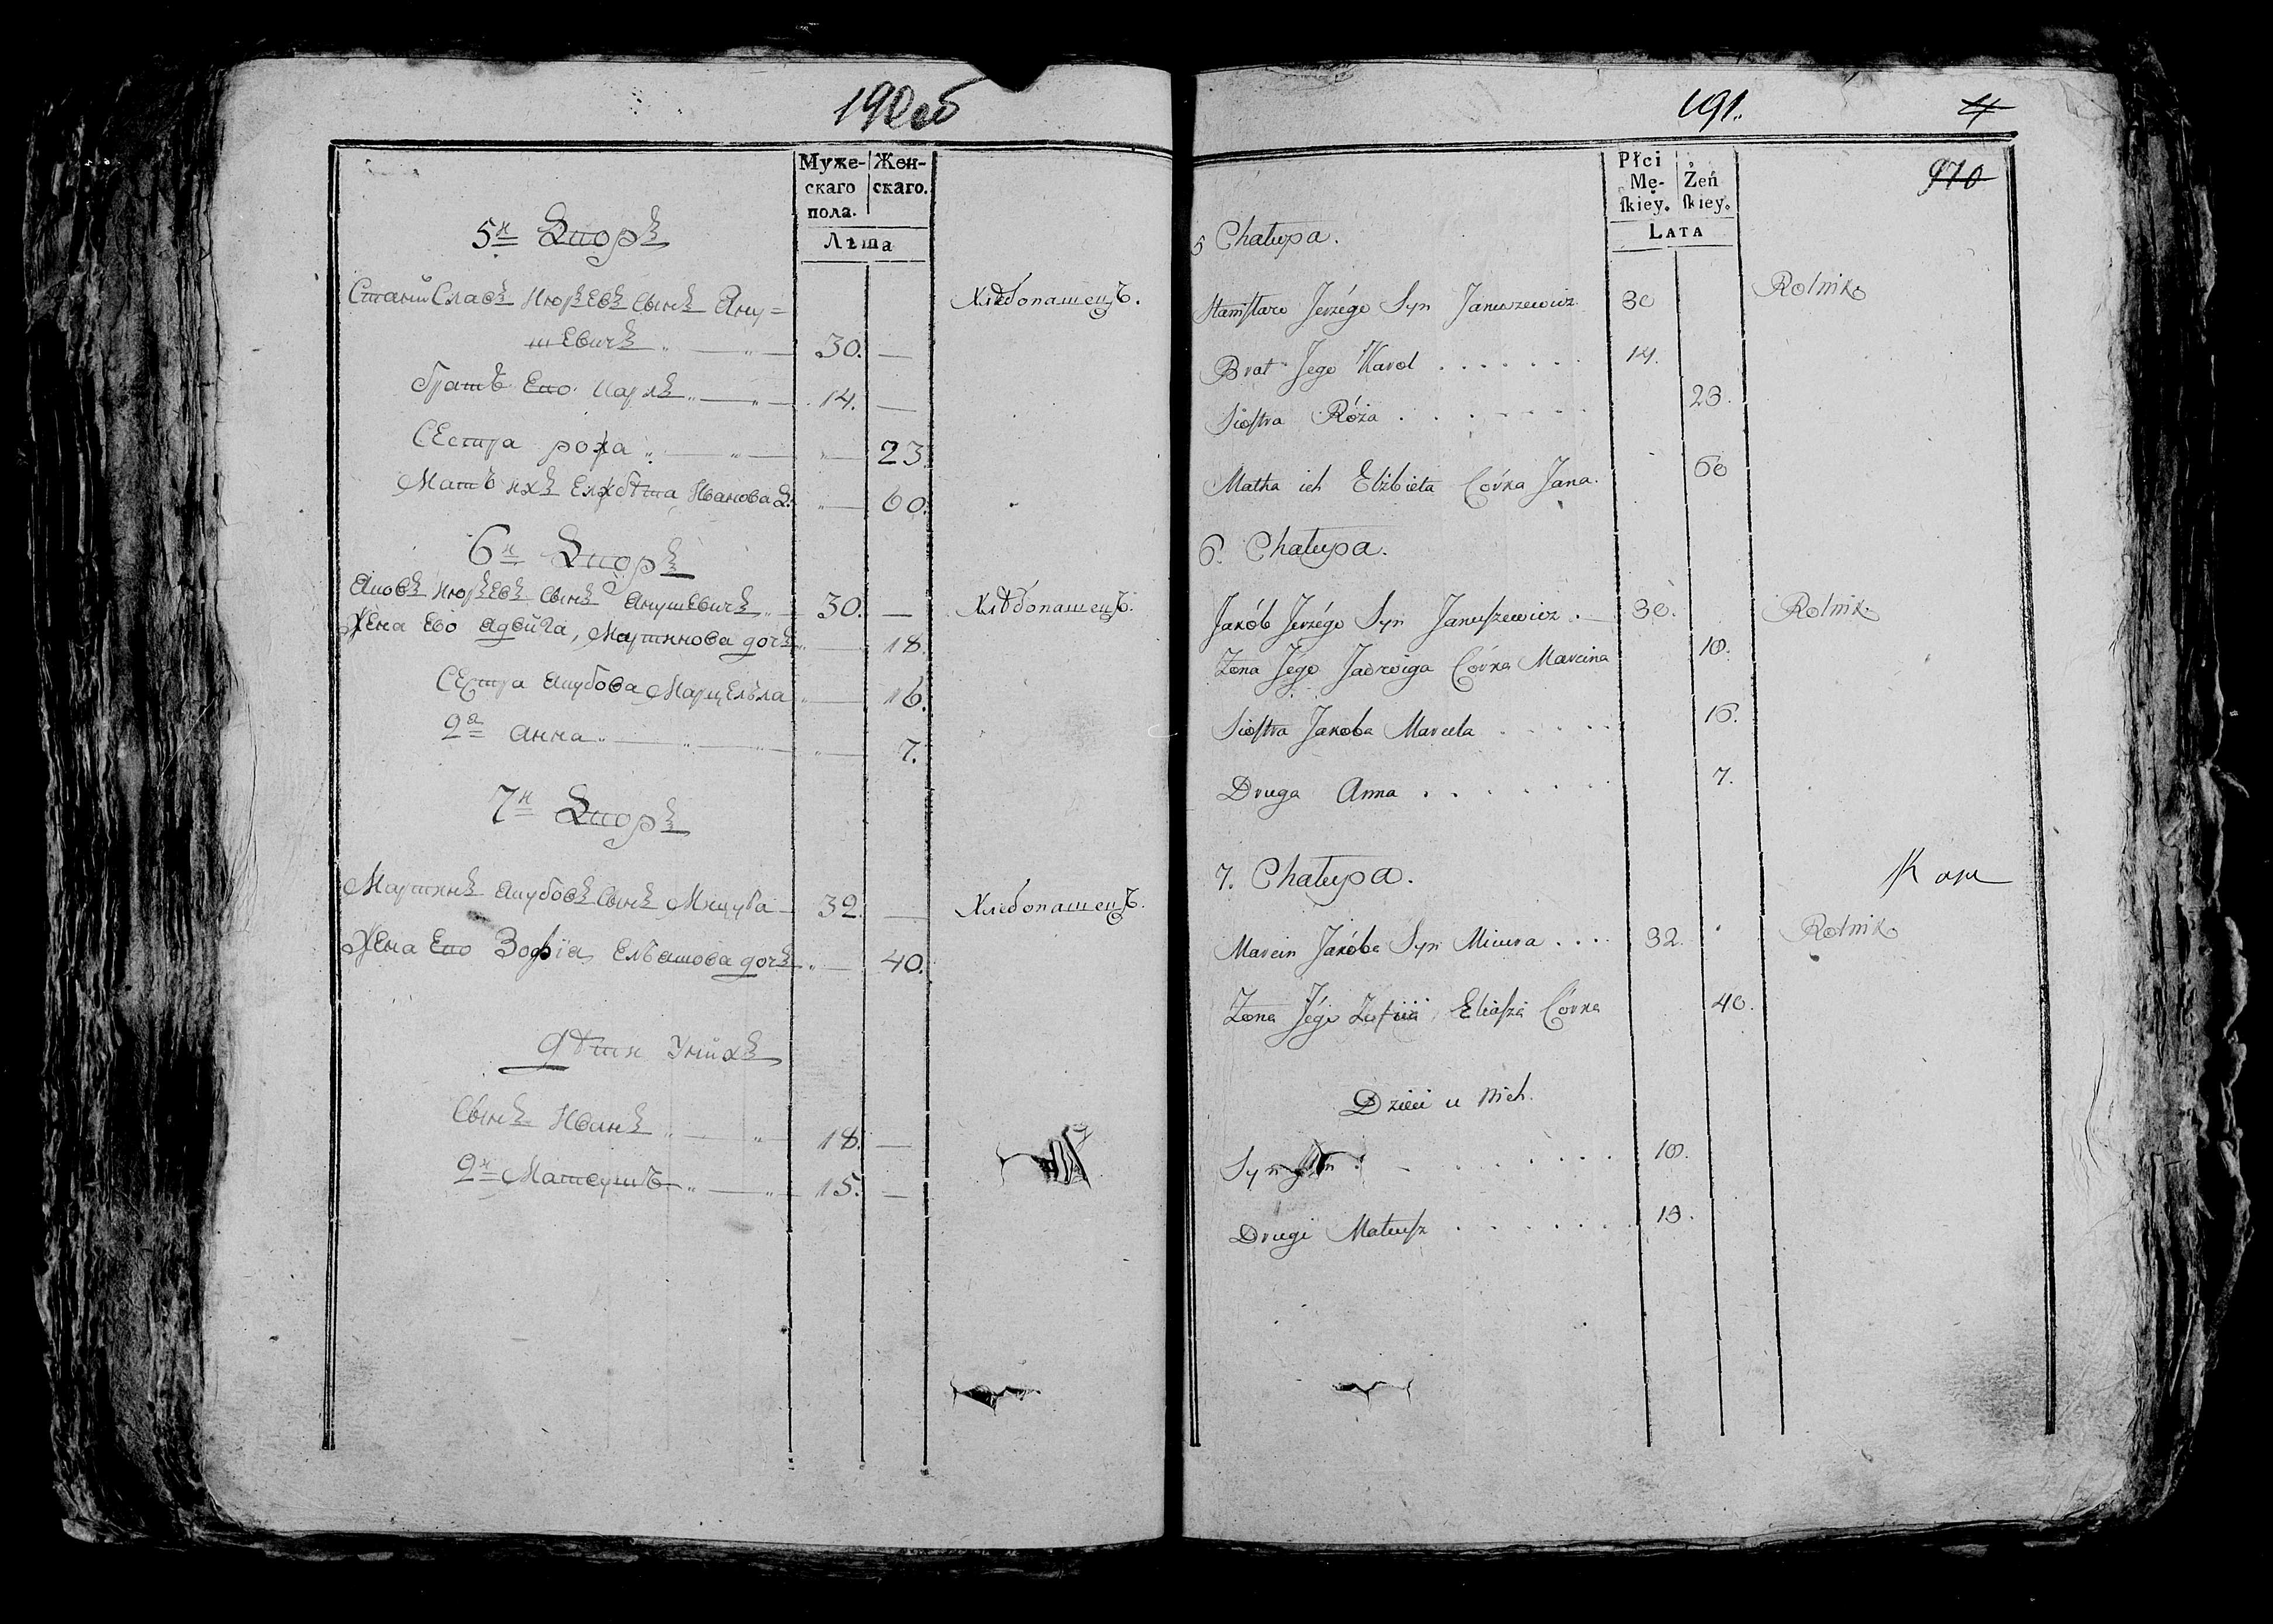 190об
Муже- Жен-
скаго скаго.
пола.
Лѣта
5й Дворъ
Станиславъ Июрьевъ сынъ Яну= Хлѣбопашецъ.
шевичъ 30. —
братъ Его Карлъ 14. —
Сестра рожа — 23.
Мать ихъ Елжбѣта Иванова Д. — 60.
6й Дворъ
Яковъ Июрьевъ сынъ Янушевичъ 30. — Хлѣбопашецъ.
Жена Ево Ядвига, Мартинова дочь — 18.
Сестра Якубова Марцелѣла — 16.
2а Анна — 7.
7й Дворъ
Мартинъ Якубовъ сынъ Мицура 32. — Хлебопашецъ.
Жена Его Зофїа Ельяшова дочь — 40.
Дѣти У нихъ
Сынъ Иванъ 18. —
2й Матеушъ 15. —
191. 4
970
Płci Żeń
Mę- ſkiey.
ſkiey.
LATA
5 Chałupa.
Staniſław Jerzégo Syn Januszewicz 30 Rolnik
Brat Jego Karol 14.
Sioſtra Róża 23.
Matka ich Elżbieta Córka Jana. 60
6. Chałupa.
Jakób Jerzégo Syn Januſzewicz 30. Rolnik.
Zona Jégo Jadwiga Córka Marcina 18.
Sioſtra Jakoba Marcela 16.
Druga Anna 7.
7. Chałupa.
Marcin Jakóba Syn Micura 32. Rolnik
Zona Jégo Zofiia Eliaſza Córka 40.
Dzieci u nich.
Syn Jan 18.
Drugi Mateuſz 15.